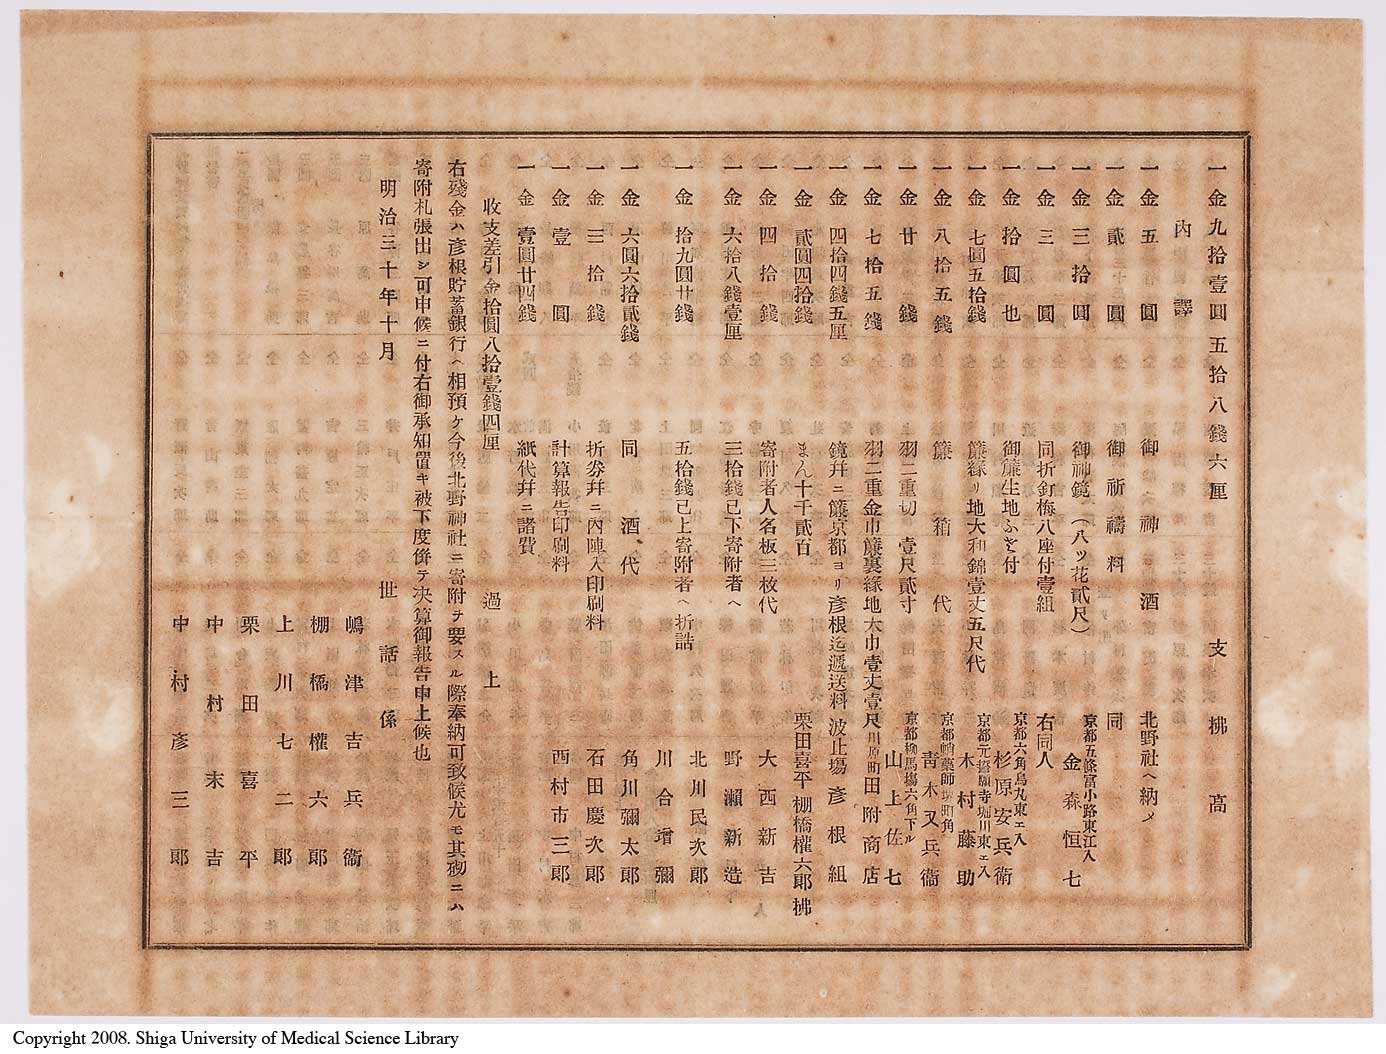 一金九拾壹圓五拾八錢六厘 支拂高
內譯
一金五圓 御神酒 北野社ヘ納メ
一金貳圓 御祈禱料 同
一金三拾圓 御神鏡(八ツ花貳尺) 京都五條富小路東江入 金森恒七
一金三圓 同折釘梅八座付壹組 右同人
一金拾圓也 御簾生地ふさ付 京都六角烏丸東エ入 杉原安兵衛
一金七圓五拾錢 簾緣リ地大和錦壹丈五尺代 京都元誓願寺堀川東エ入 木村藤助
一金八拾五錢 簾箱代 京都蛸藥師堺町角 靑木又兵衞
一金廿錢 羽二重切壹尺貳寸 京都柳馬塲六角下ル 山上佐七
一金七拾五錢 羽二重金巾簾裏緣地大巾壹丈壹尺 川原町 田附商店
一金四拾四錢五厘 鏡幷ニ簾京都ヨリ彥根迄遞送料 波止塲 彥根組
一金貳圓四拾錢 まん十千貳百 栗田喜平 棚橋權六郎拂
一金四拾錢 寄附者人名板三枚代 大西新吉
一金六拾八錢壹厘 三拾錢己下寄附者ヘ 野瀨新造
一金拾九圓廿錢 五拾錢己上寄附者ヘ折詰 北川民次郎
川合增彌
一金六圓六拾貳錢 同酒代 角川彌太郎
一金三拾錢 折券幷ニ內陣入印刷料 石田慶次郎
一金壹圓 計算報告印刷料 西村市三郎
一金壹圓廿四錢 紙代幷ニ諸費
收支差引金拾圓八拾壹錢四厘 過上
右殘金ハ彥根貯蓄銀行ヘ相預ケ今後北野神社ニ寄附ヲ要スル際奉納可致候尤モ其砌ニハ
寄附札張出シ可申候ニ付右御承知置キ被下度倂テ决算御報告申上候也
明治三十年十月 世話係
嶋津吉兵衞
棚橋權六郎
上川七二郎
栗田喜平
中村末吉
中村彥三郎
Copyright 2008. Shiga University of Medical Science Library